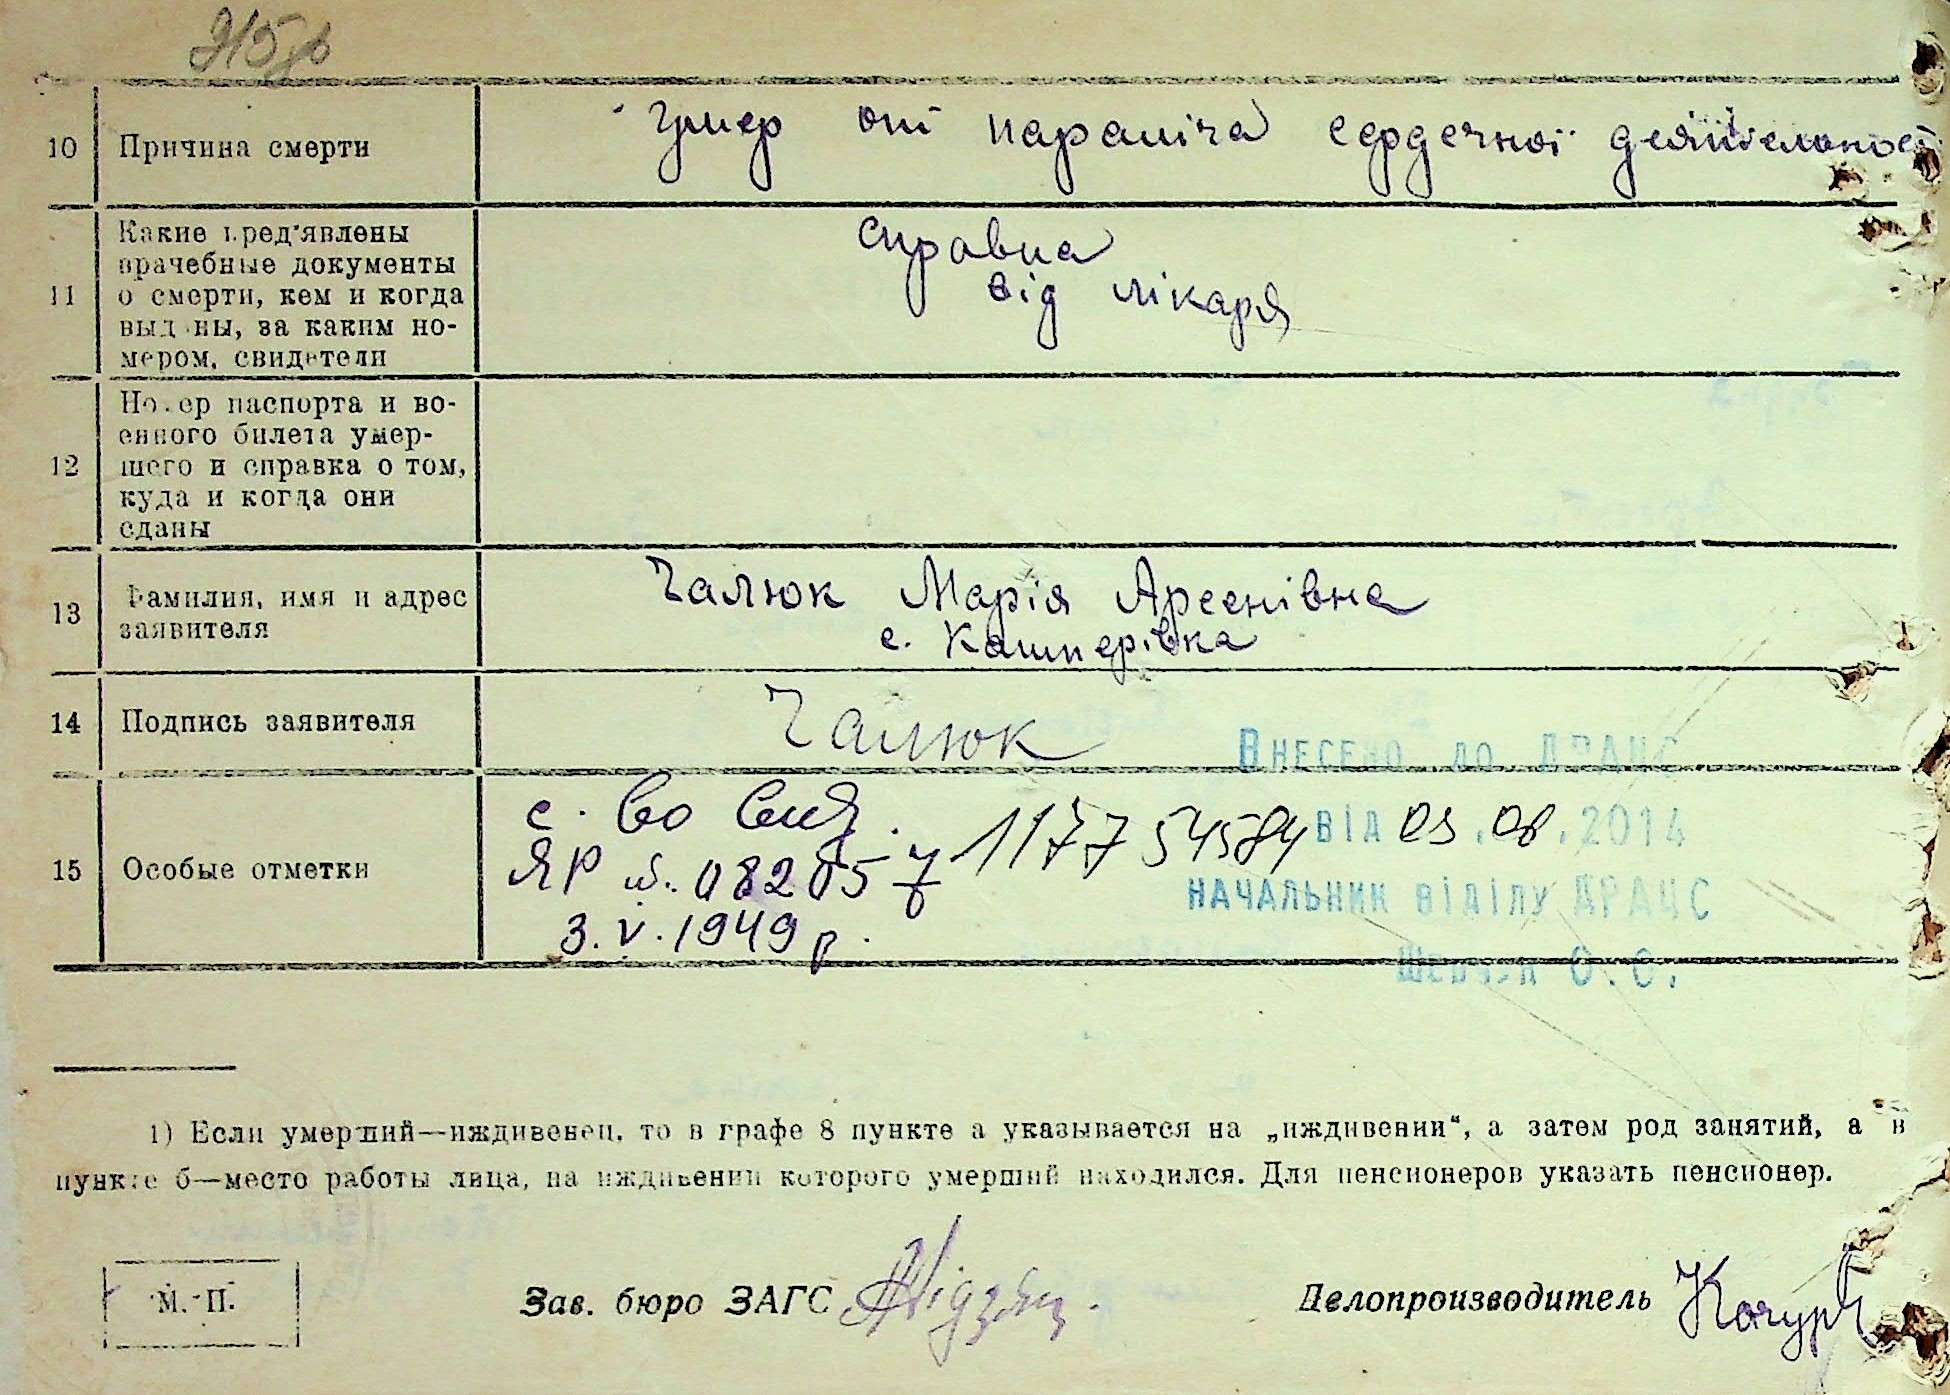 10
Причина смерти
Умер от параліча сердечної деятельност
11
Какие пред'явлены
врачебные документы
о смерти, кем и когда
выданы, за каким но-
мером, свидетели
справка
від лікаря
12
Номер паспорта и во-
енного билета умер-
шего и справка о том,
куда и когда они
сданы
13
Фамилия, имя и адрес
заявителя
Чалюк Марія Арсенівна
с. Кашперівка
14
Подпись заявителя
Чалюк
15
Особые отметки
с. во
ЯР № 082057
3.V.1949 р.
1177 54584
Внесено до ДРАЦС
від 03.08.2014
начальник відділу ДРАЦС
Шевчук О.О.
1) Если умерший—иждивенец, то в графе 8 пункте а указывается на „иждивении“, а затем род занятий, а в
пункте б—место работы лица, на иждивении которого умерший находился. Для пенсионеров указать пенсионер.
М. П.
Зав. бюро ЗАГС
Делопроизводитель